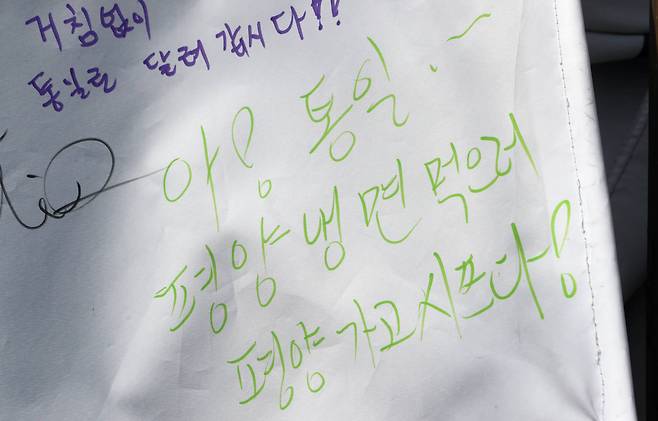 거침없이
통일로 달려 갑시다!!
아! 통일.~
평양냉면 먹으러
평양가고시프다!